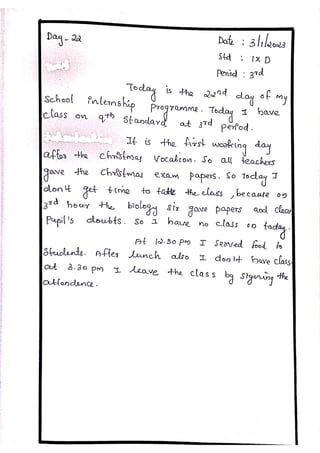 Day-22
Date : 3/1/2023
Std : IX D
Period : 3rd
Today is the 22nd day of my
School internship programme. Today I have
class on 9th Standard at 3rd period.
It is the first working day
after the Christmas Vocation. So all teachers
gave the Christmas exam papers. So today I
don't get time to take the class, because on
3rd hour the biology sir gave papers and clear
Pupil's doubts. So I have no class on today.
At 12.30 pm I served food to
Students. After lunch also I don't have class
at 3.30 pm I leave the class by signing the
attendence.